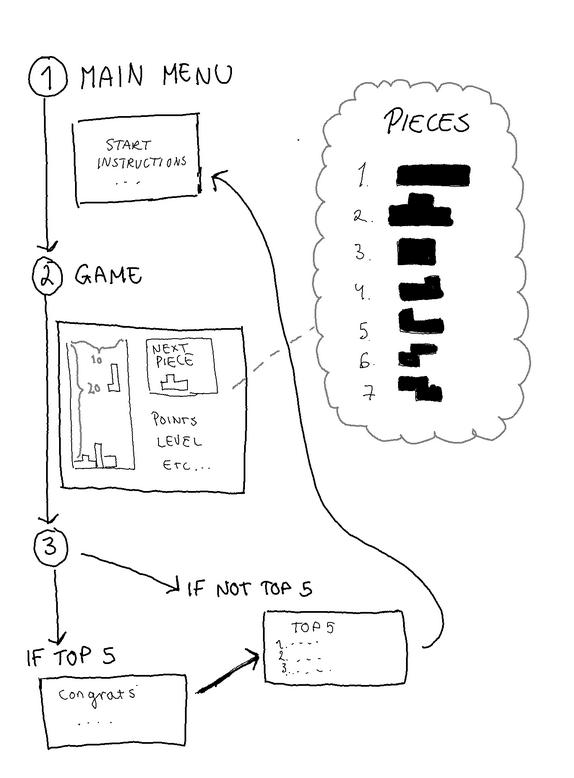 1 MAIN MENU
START
INSTRUCTIONS
...
2 GAME
10
20
NEXT
PIECE
POINTS
LEVEL
ETC...
PIECES
1.
2.
3.
4.
5.
6.
7
3
IF NOT TOP 5
IF TOP 5
Congrats
....
TOP 5
1. ----
2. ----
3. ----